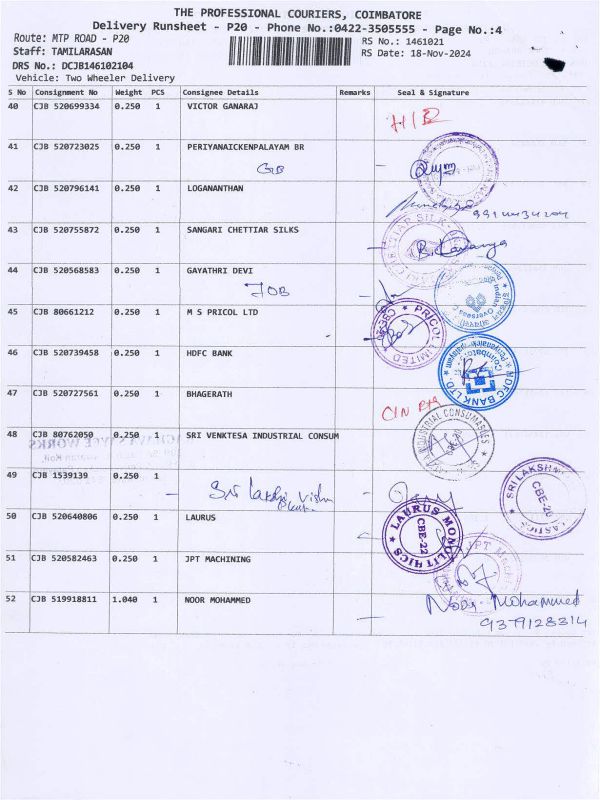 THE PROFESSIONAL COURIERS, COIMBATORE
Delivery Runsheet - P20 - Phone No.:0422-3505555 - Page No.:4
Route: MTP ROAD - P20
RS No.: 1461021
Staff: TAMILARASAN
RS Date: 18-Nov-2024
DRS No.: DCJB146102104
Vehicle: Two Wheeler Delivery
S No Consignment No Weight PCS Consignee Details Remarks Seal & Signature
40 CJB 520699334 0.250 1 VICTOR GANARAJ
41 CJB 520723025 0.250 1 PERIYANAICKENPALAYAM BR
42 CJB 520796141 0.250 1 LOGANANTHAN
43 CJB 520755872 0.250 1 SANGARI CHETTIAR SILKS
44 CJB 520568583 0.250 1 GAYATHRI DEVI
IOB
45 CJB 80661212 0.250 1 M S PRICOL LTD
PRICOL LIMITED
46 CJB 520739458 0.250 1 HDFC BANK
HDFC BANK LTD.
47 CJB 520727561 0.250 1 BHAGERATH
48 CJB 80762050 0.250 1 SRI VENKTESA INDUSTRIAL CONSUM
INDUSTRIAL CONSUMABLES
49 CJB 1539139 0.250 1
Sri Lakshmi Vishnu
SRI LAKSHMI
CBE-20
50 CJB 520640806 0.250 1 LAURUS
LAURUS MONOLITHICS
CBE-22
51 CJB 520582463 0.250 1 JPT MACHINING
52 CJB 519918811 1.040 1 NOOR MOHAMMED
Noor Mohammed
9379128314